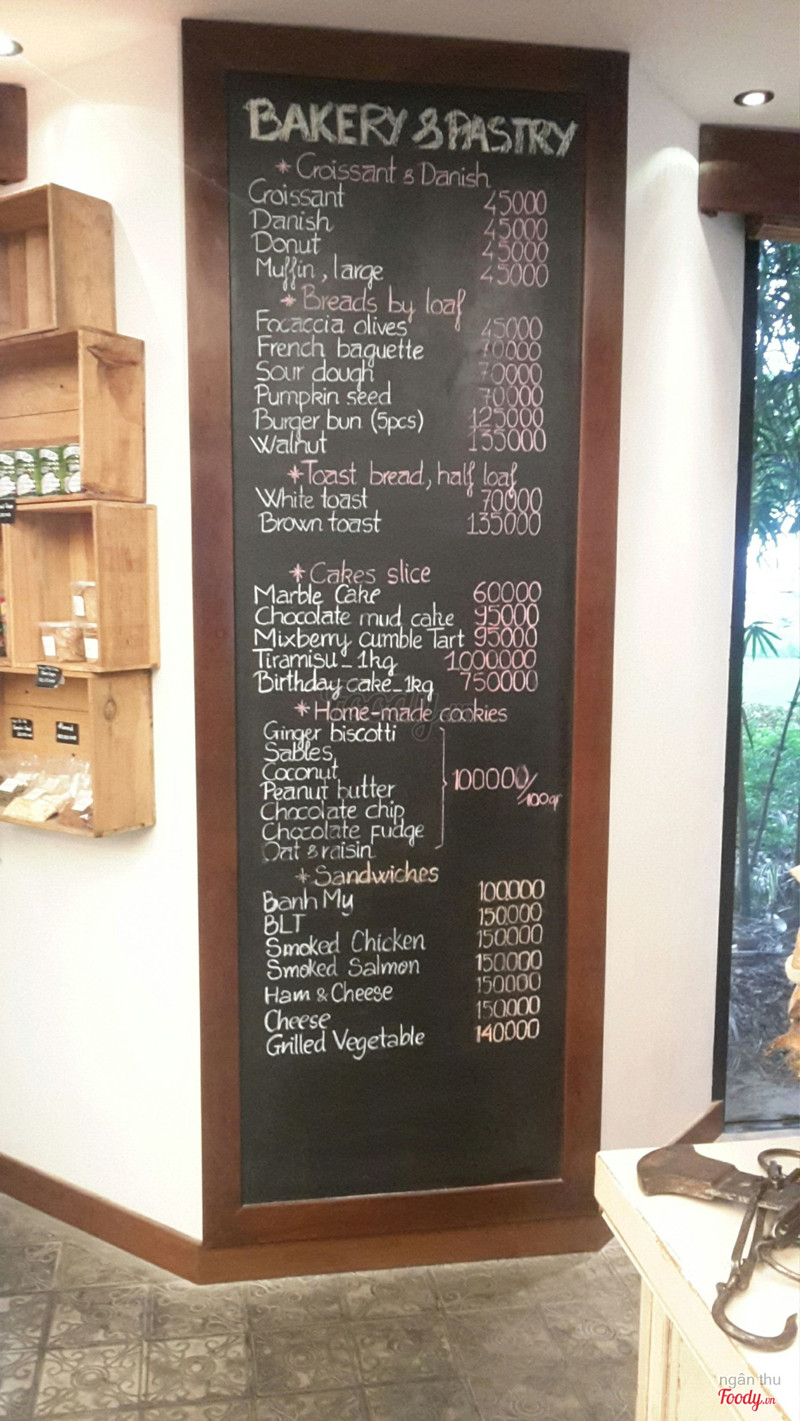 BAKERY & PASTRY
* Croissant & Danish
Croissant 45000
Danish 45000
Donut 45000
Muffin, large 45000
* Breads by loaf
Focaccia olives 45000
French baguette 70000
Sour dough 70000
Pumpkin seed 70000
Burger bun (5pcs) 125000
Walnut 135000
* Toast bread, half loaf
White toast 70000
Brown toast 135000
* Cakes slice
Marble Cake 60000
Chocolate mud cake 95000
Mixberry cumble Tart 95000
Tiramisu_1kg 1000000
Birthday cake_1kg 750000
* Home-made cookies
Ginger biscotti
Sables
Coconut
Peanut butter
Chocolate chip
Chocolate fudge
Oat & raisin
100000/100gr
* Sandwiches
Banh My 100000
BLT 150000
Smoked Chicken 150000
Smoked Salmon 150000
Ham & Cheese 150000
Cheese 150000
Grilled Vegetable 140000
ngân thu
Foody.vn